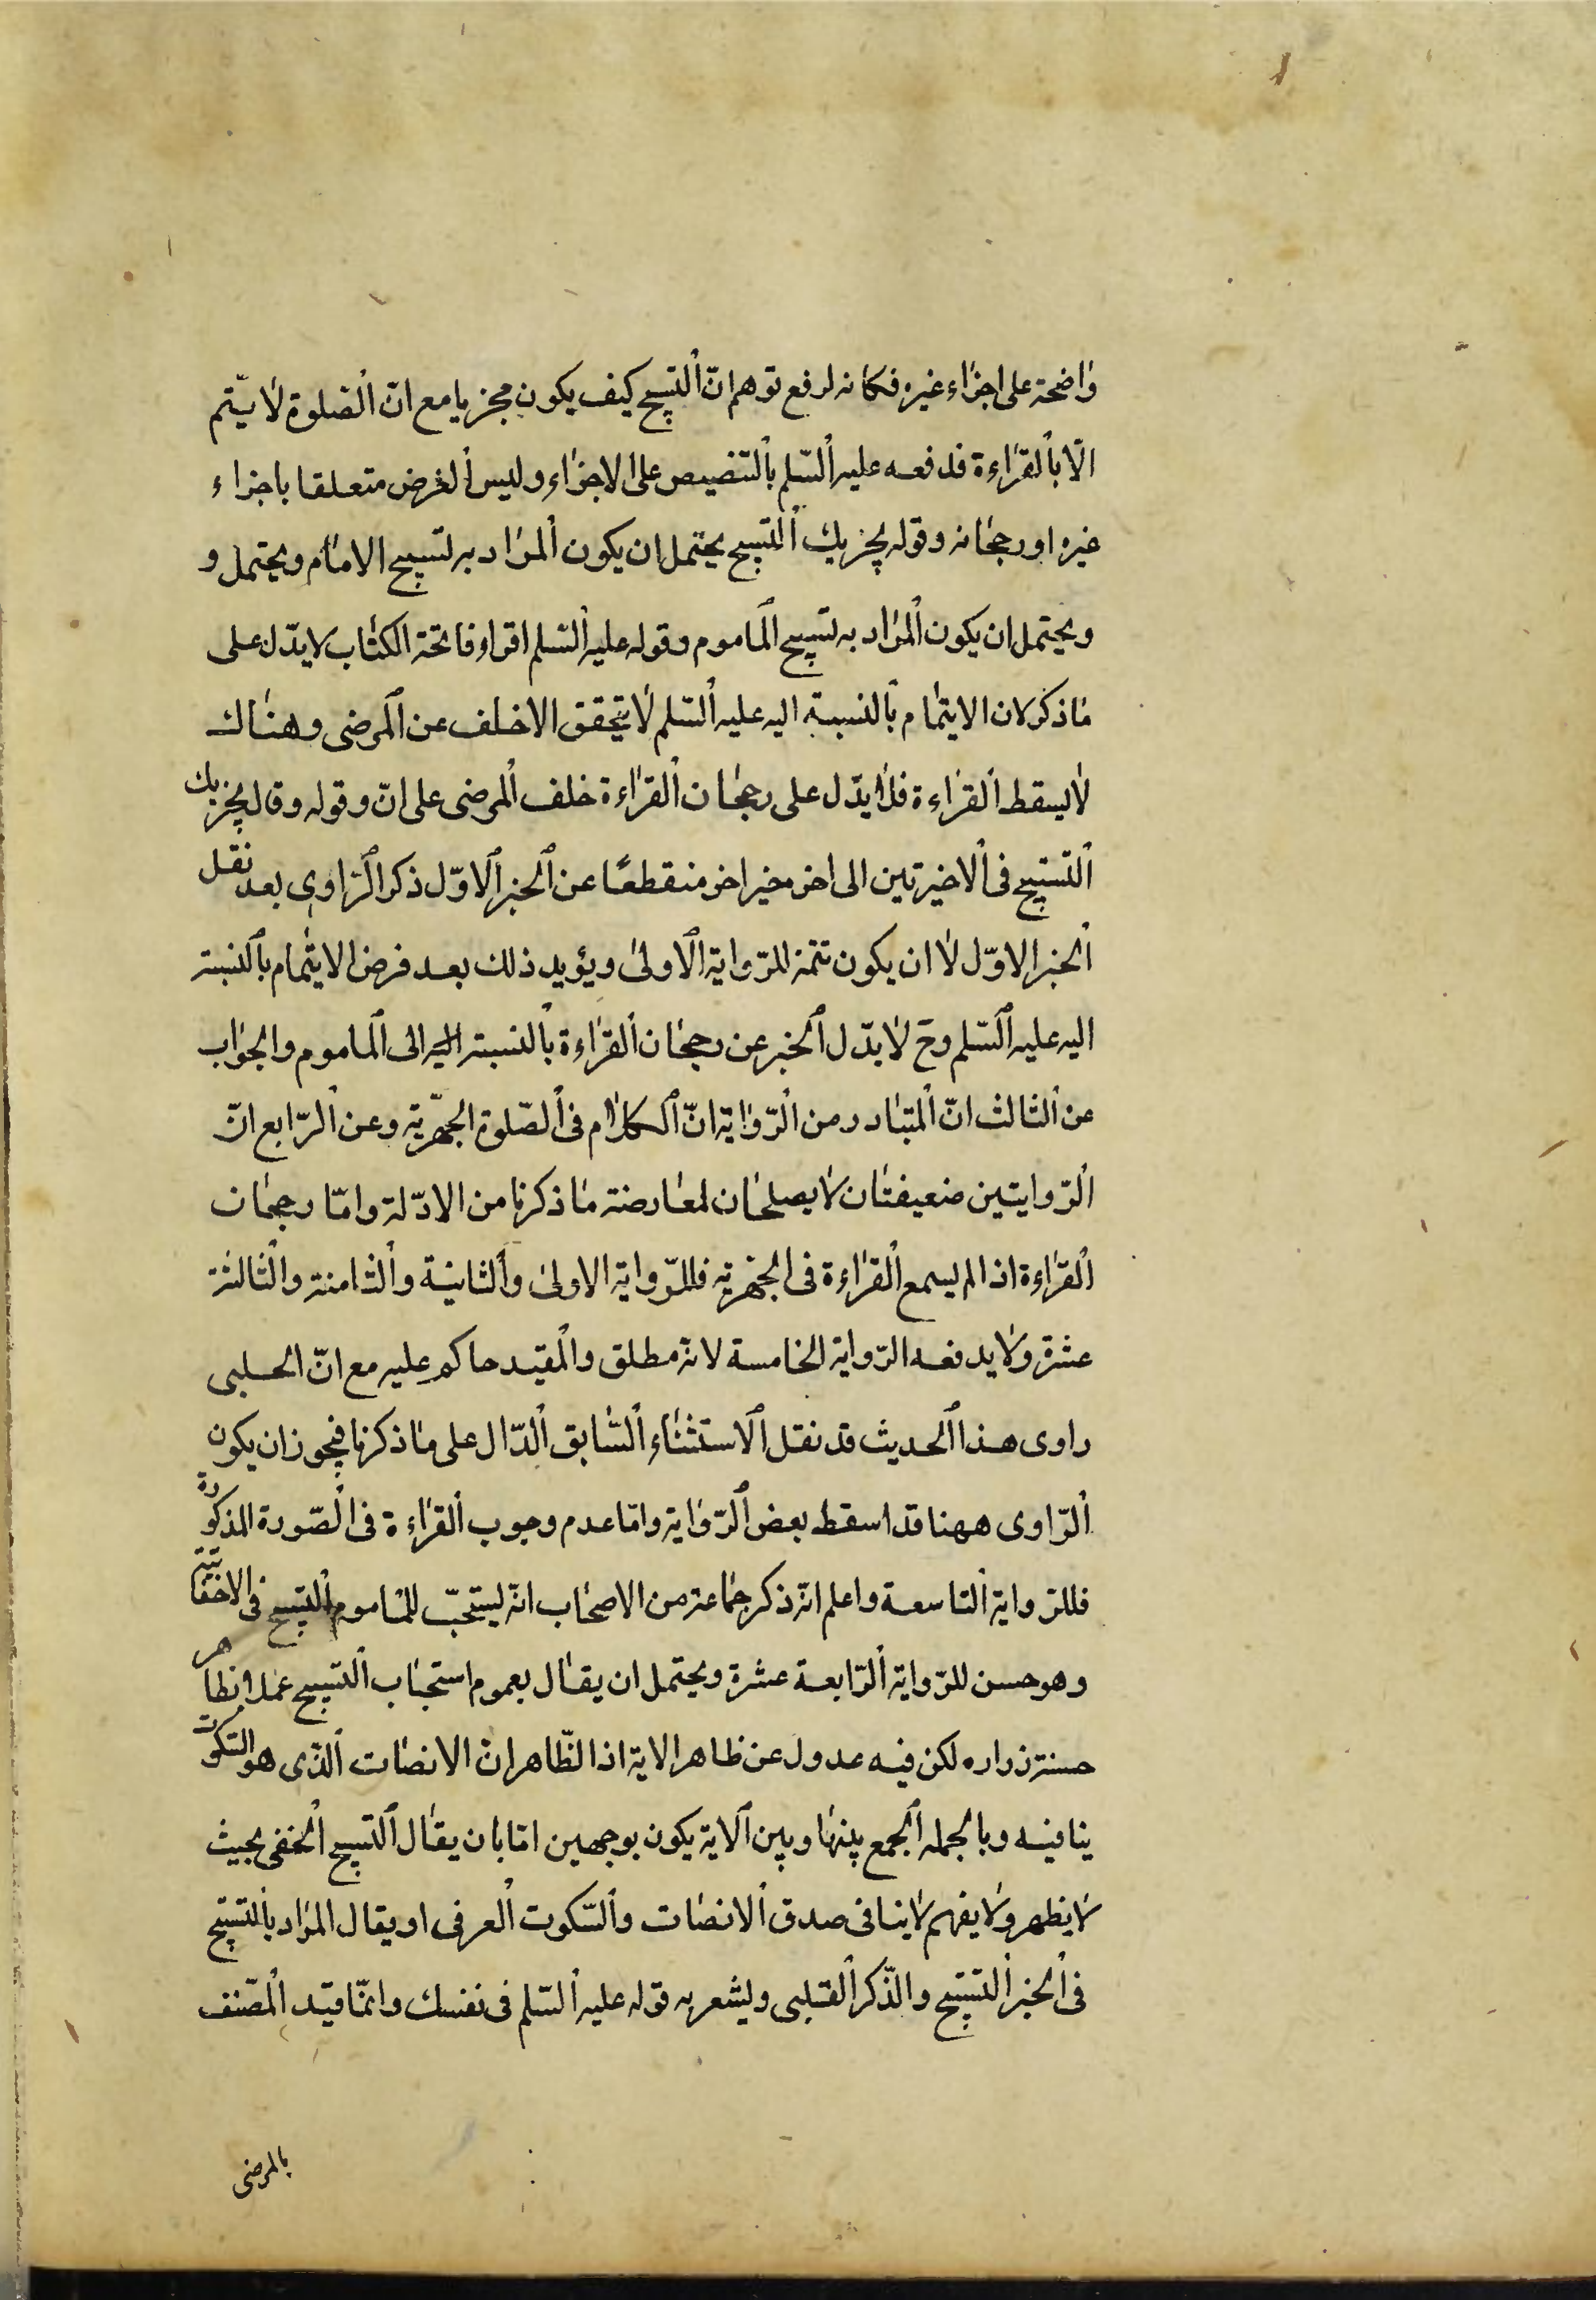 واضحة على اجزاء غيره فكانه لرفع توهم انّ التسبيح كيف يكون مجزيا مع انّ الصّلوة لا يتّم
الّا بالقراءة فدفعه عليه السّلم بالتنصيص على الاجزاء وليس الغرض متعلقا باجزاء
غيره او رجحانه وقوله يجزيك التسبيح يحتمل ان يكون المراد به تسبيح الامام ويحتمل و
ويحتمل ان يكون المراد به تسبيح الماموم وقوله عليه السّلم اقراء فاتحة الكتاب لا يدّل على
ما ذكر لان الايتمام بالنسبة اليه عليه السّلم لا يتحقق الا خلف عن المرضى وهناك
لا يسقط القراءة فلا يدّل على رجحان القراءة خلف المرضى على انّ وقوله وقال يجزيك
التسبيح فى الاخيرتين الى اخره خبر اخر منقطعًا عن الخبر الاوّل ذكر الرّاوى بعد نقل
الخبر الاوّل لا ان يكون تتمة للرّواية الاولى ويؤيد ذلك بعد فرض الايتمام بالنسبة
اليه عليه السّلم وح لا يدّل الخبر عن رجحان القراءة بالنسبة اليه الى الماموم والجواب
عن الثالث انّ المتبادر من الرّواية انّ الكلام فى الصّلوة الجهّرية وعن الرّابع انّ
الرّوايتين ضعيفتان لا يصلحان لمعارضة ما ذكرنا من الادّلة وامّا رجحان
القراءة اذا لم يسمع القراءة فى الجهرية فللرّواية الاولى والثانية والثامنة والثالثة
عشرة ولا يدفعه الرّواية الخامسة لانّه مطلق والمقيد حاكم عليه مع انّ الحلبى
راوى هذا الحديث قد نقل الاستثناء السّابق الدّال على ما ذكرنا فيجوز ان يكون
الرّاوى ههنا قد اسقط بعض الرّواية وامّا عدم وجوب القراءة فى الصّورة المذكورة
فللرّواية التاسعة واعلم انّه ذكر جماعة من الاصحاب انّه يستحبّ للماموم التسبيح فى الاخفاتية
وهو حسن للرّواية الرّابعة عشرة ويحتمل ان يقال بعموم استحباب التسبيح عملا بظاهر
حسنة زراره لكن فيه عدول عن ظاهر الاية اذا الظّاهر انّ الانصات الّذى هو السّكوت
ينافيه وبالجمله الجمع بينها وبين الاية يكون بوجهين امّا بان يقال التسبيح الخفى بحيث
لا يظهر ولا يفهم لا ينافى صدق الانصات والسّكوت العرفى او يقال المراد بالتسبيح
فى الخبر التسبيح والذّكر القلبى ويشعر به قوله عليه السّلم فى نفسك وانمّا قيّد المصّنف
بالمرضى